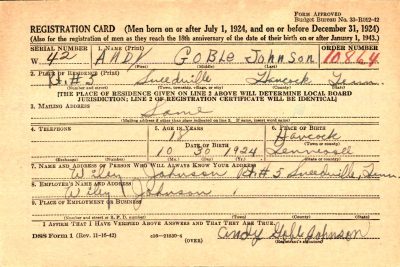 FORM APPROVED
Budget Bureau No. 33-R012-42
REGISTRATION CARD (Men born on or after July 1, 1924, and on or before December 31, 1924)
(Also for the registration of men as they reach the 18th anniversary of the date of their birth on or after January 1, 1943.)
SERIAL NUMBER 1. NAME (Print) ORDER NUMBER
W 42 ANDY GOBLE Johnson 10864
2. PLACE OF RESIDENCE (Print)
Rt #3 Sneedville Hancock Tenn.
(Number and street) (Town, township, village, or city) (County) (State)
[THE PLACE OF RESIDENCE GIVEN ON LINE 2 ABOVE WILL DETERMINE LOCAL BOARD
JURISDICTION; LINE 2 OF REGISTRATION CERTIFICATE WILL BE IDENTICAL]
3. MAILING ADDRESS
Same
[Mailing address if other than place indicated on line 2. If same, insert word same]
4. TELEPHONE 5. AGE IN YEARS 6. PLACE OF BIRTH
18 Hancock
DATE OF BIRTH (Town or county)
10 30 1924 Tennessee
(Exchange) (Number) (Mo.) (Day) (Yr.) (State or country)
7. NAME AND ADDRESS OF PERSON WHO WILL ALWAYS KNOW YOUR ADDRESS
Wiley Johnson Rt #3 Sneedville, Tenn.
8. EMPLOYER'S NAME AND ADDRESS
Wiley Johnson
9. PLACE OF EMPLOYMENT OR BUSINESS
(Number and street or R. F. D. number) (Town) (County) (State)
I AFFIRM THAT I HAVE VERIFIED ABOVE ANSWERS AND THAT THEY ARE TRUE.
DSS Form 1 (Rev. 11-16-42) (OVER) Andy Goble Johnson
(Registrant's signature)